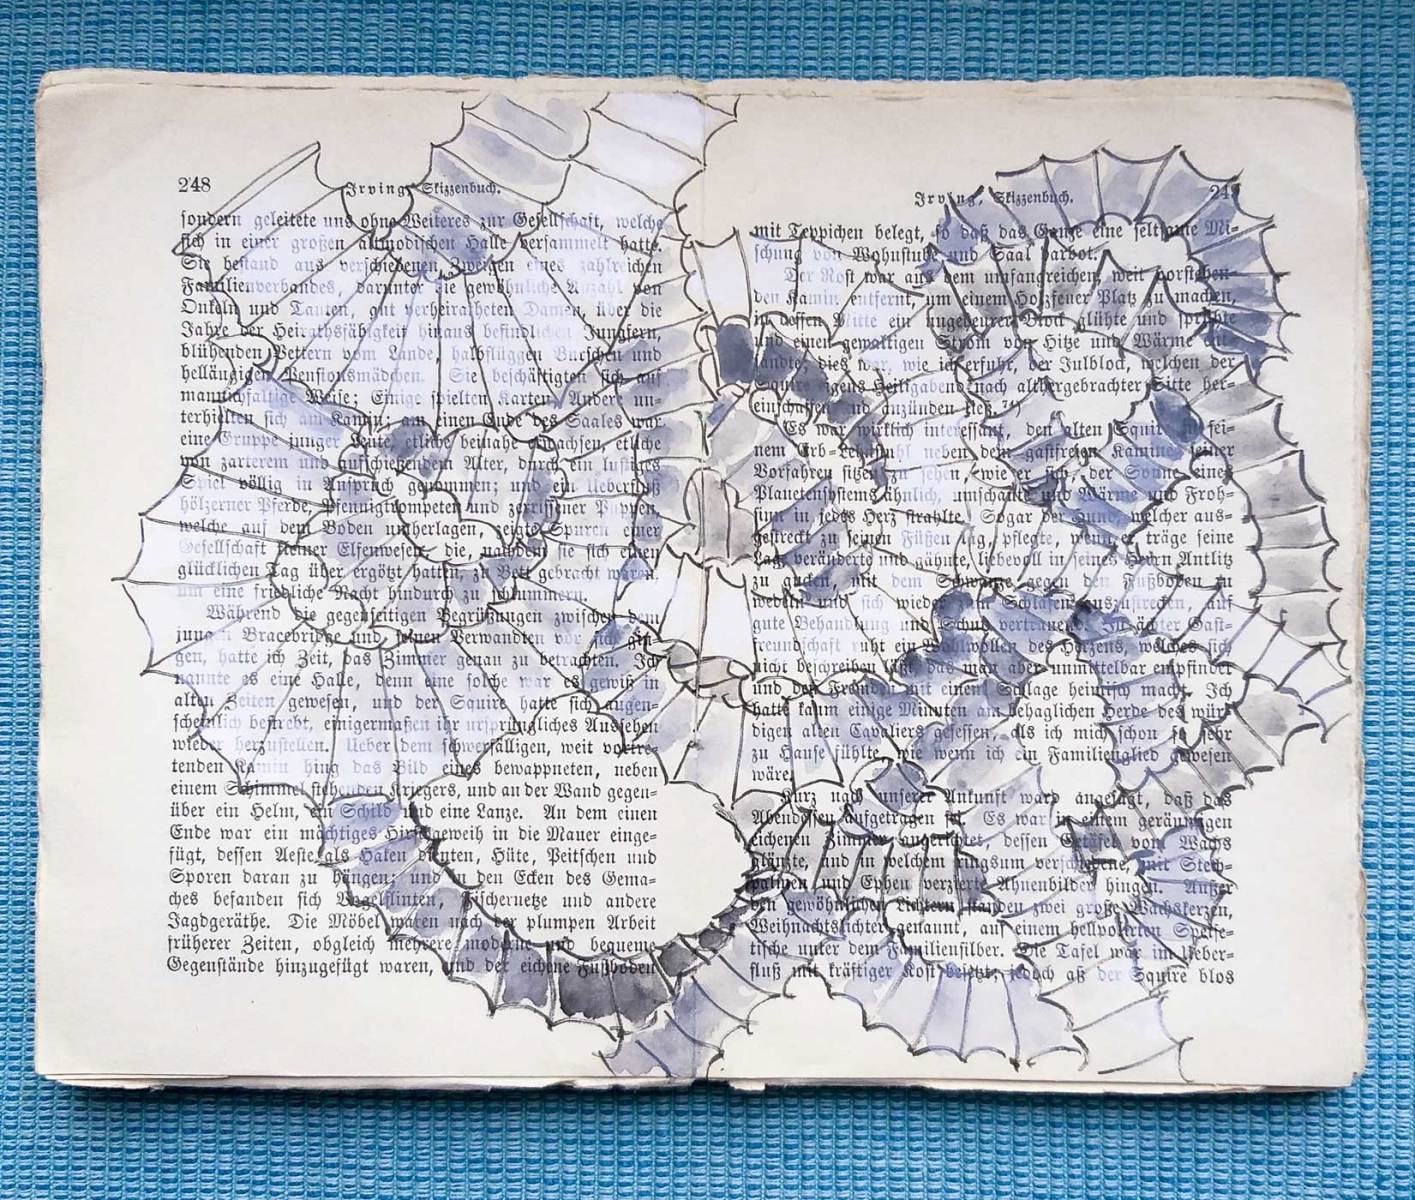 248
Irving, Skizzenbuch.
sondern geleitete uns ohne Weiteres zur Gesellschaft, welche
sich in einer großen altmodischen Halle versammelt hatte.
Sie bestand aus verschiedenen Zweigen eines zahlreichen
Familienverbandes, darunter die gewöhnliche Anzahl von
Onkeln und Tanten, gut verheiratheten Damen, über die
Jahre der Heirathsfähigkeit hinaus befindlichen Jungfern,
blühenden Vettern vom Lande, halbflüggen Burschen und
helläugigen Pensionsmädchen. Sie beschäftigten sich auf
mannichfaltige Weise; Einige spielten Karten, Andere un-
terhielten sich am Kamin; am einen Ende des Saales war
eine Gruppe junger Leute, etliche beinahe erwachsen, etliche
von zarterem und aufschießendem Alter, durch ein lustiges
Spiel völlig in Anspruch genommen; und ein Ueberfluß
hölzerner Pferde, Pfennigtrompeten und zerrissener Puppen,
welche auf dem Boden umherlagen, zeigte Spuren einer
Gesellschaft kleiner Elfenwesen, die, nachdem sie sich einen
glücklichen Tag über ergötzt hatten, zu Bett gebracht waren,
um eine friedliche Nacht hindurch zu schlummern.
Während die gegenseitigen Begrüßungen zwischen dem
jungen Bracebridge und seinen Verwandten vor sich gin-
gen, hatte ich Zeit, das Zimmer genau zu betrachten. Ich
nannte es eine Halle, denn eine solche war es gewiß in
alten Zeiten gewesen, und der Squire hatte sich augen-
scheinlich bestrebt, einigermaßen ihr ursprüngliches Aussehen
wieder herzustellen. Ueber dem schwerfälligen, weit vortre-
tenden Kamin hing das Bild eines bewappneten, neben
einem Schimmel stehenden Kriegers, und an der Wand gegen-
über ein Helm, ein Schild und eine Lanze. An dem einen
Ende war ein mächtiges Hirschgeweih in die Mauer einge-
fügt, dessen Aeste als Haken dienten, Hüte, Peitschen und
Sporen daran zu hängen; und in den Ecken des Gema-
ches befanden sich Vogelflinten, Fischernetze und andere
Jagdgeräthe. Die Möbel waren nach der plumpen Arbeit
früherer Zeiten, obgleich mehrere moderne und bequeme
Gegenstände hinzugefügt waren, und der eichene Fußboden
Irving, Skizzenbuch.
249
mit Teppichen belegt, so daß das Ganze eine seltsame Mi-
schung von Wohnstube und Saal darbot.
Der Rost war aus dem umfangreichen, weit vorstehen-
den Kamin entfernt, um einem Holzfeuer Platz zu machen,
in dessen Mitte ein ungeheurer Block glühte und sprühte
und einen gewaltigen Strom von Hitze und Wärme ent
sandte; dies war, wie ich erfuhr, der Julblock, welchen der
Squire eigens Heiligabend nach althergebrachter Sitte her-
einschaffen und anzünden ließ.
Es war wirklich interessant, den alten Squire in sei-
nem Erb-Lehnstuhl neben dem gastfreien Kamine seiner
Vorfahren sitzen zu sehen, wie er sich, der Sonne eines
Planetensystems ähnlich, umschaute und Wärme und Froh-
sinn in jedes Herz strahlte. Sogar der Hund, welcher aus-
gestreckt zu seinen Füßen lag, pflegte, wenn er träge seine
Lage veränderte und gähnte, liebevoll in seines Herrn Antlitz
zu gucken, mit dem Schwanze gegen den Fußboden zu
wedeln und sich wieder zum Schlafen auszustrecken, auf
gute Behandlung und Schutz vertrauend. In ächter Gast-
freundschaft ruht ein Wohlwollen des Herzens, welches sich
nicht beschreiben läßt, das man aber unmittelbar empfindet
und den Fremden mit einem Schlage heimisch macht. Ich
hatte kaum einige Minuten am behaglichen Herde des wür-
digen alten Cavaliers gesessen, als ich mich schon so sehr
zu Hause fühlte, wie wenn ich ein Familienglied gewesen
wäre.
Kurz nach unserer Ankunft ward angesagt, daß das
Abendessen aufgetragen sei. Es war in einem geräumigen
eichenen Zimmer angerichtet, dessen Getäfel vom Wachs
glänzte, und in welchem ringsum verschiedene, mit Stech-
palmen und Epheu verzierte Ahnenbilder hingen. Außer
den gewöhnlichen Lichtern standen zwei große Wachskerzen,
Weihnachtslichter genannt, auf einem hellpolirten Speise-
tische unter dem Familiensilber. Die Tafel war im Ueber-
fluß mit kräftiger Kost besetzt; jedoch aß der Squire blos